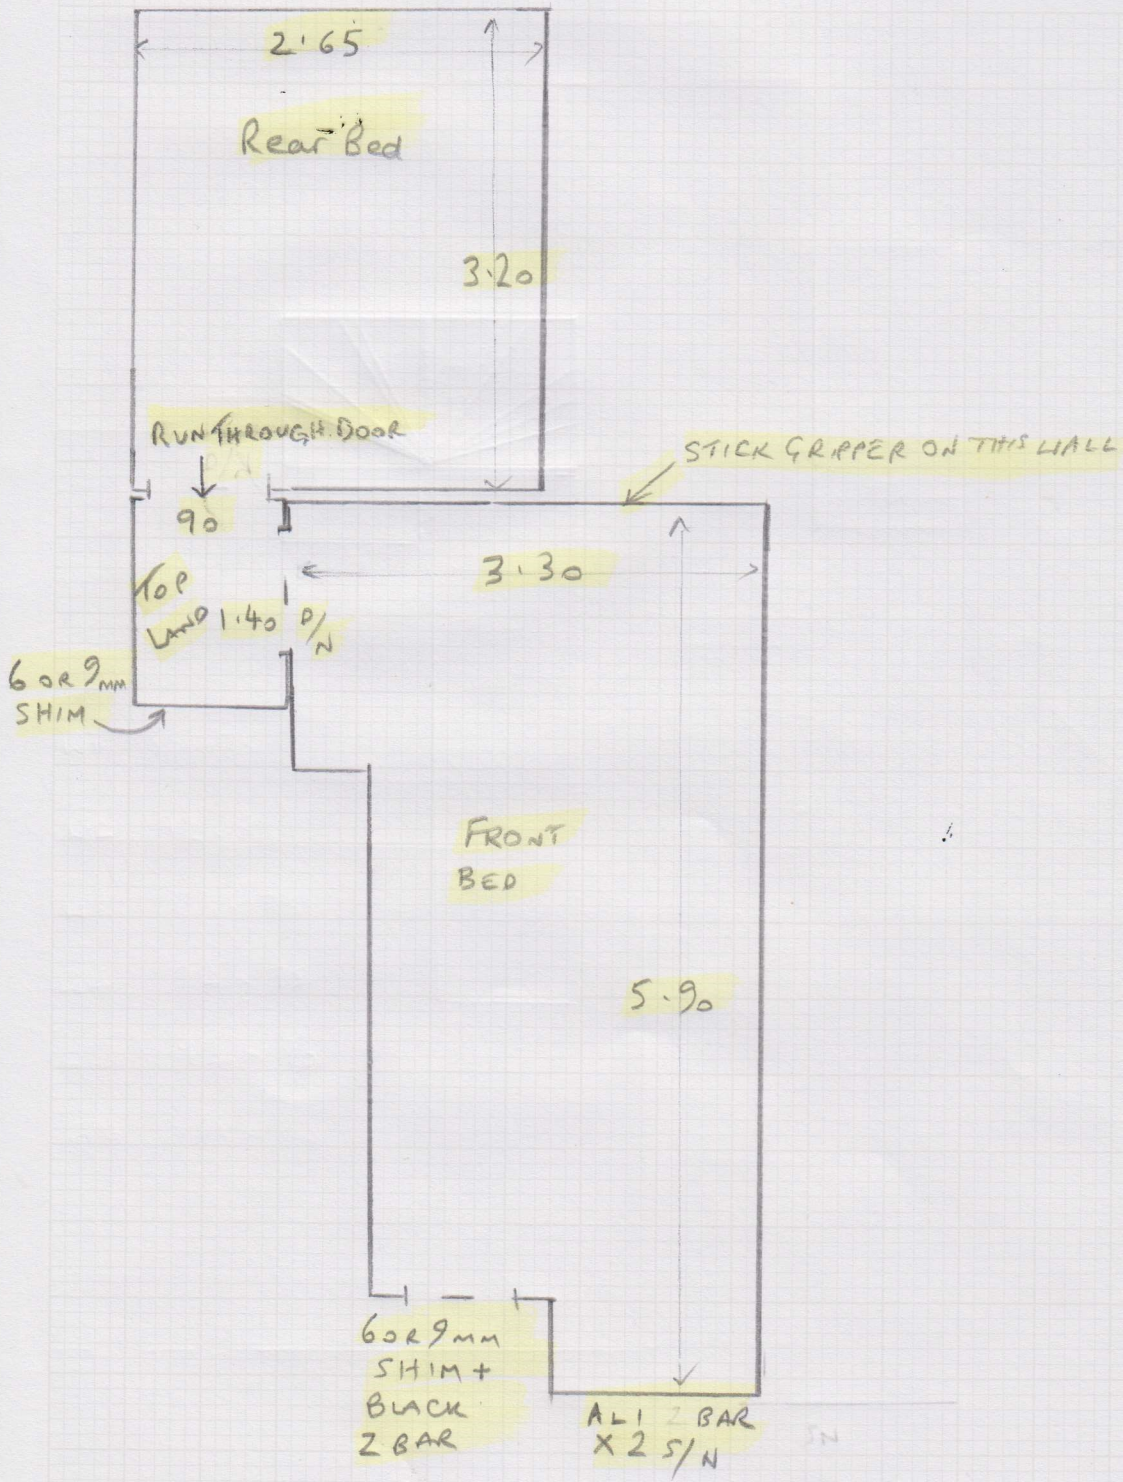 2.65
Rear Bed
3.20
RUN THROUGH DOOR
STICK GRIPPER ON THIS WALL
90
3.30
TOP
LAND 1.40
D/N
6 OR 9MM
SHIM
FRONT
BED
5.90
6 OR 9MM
SHIM +
BLACK
Z BAR
ALI Z BAR
X 2 S/N